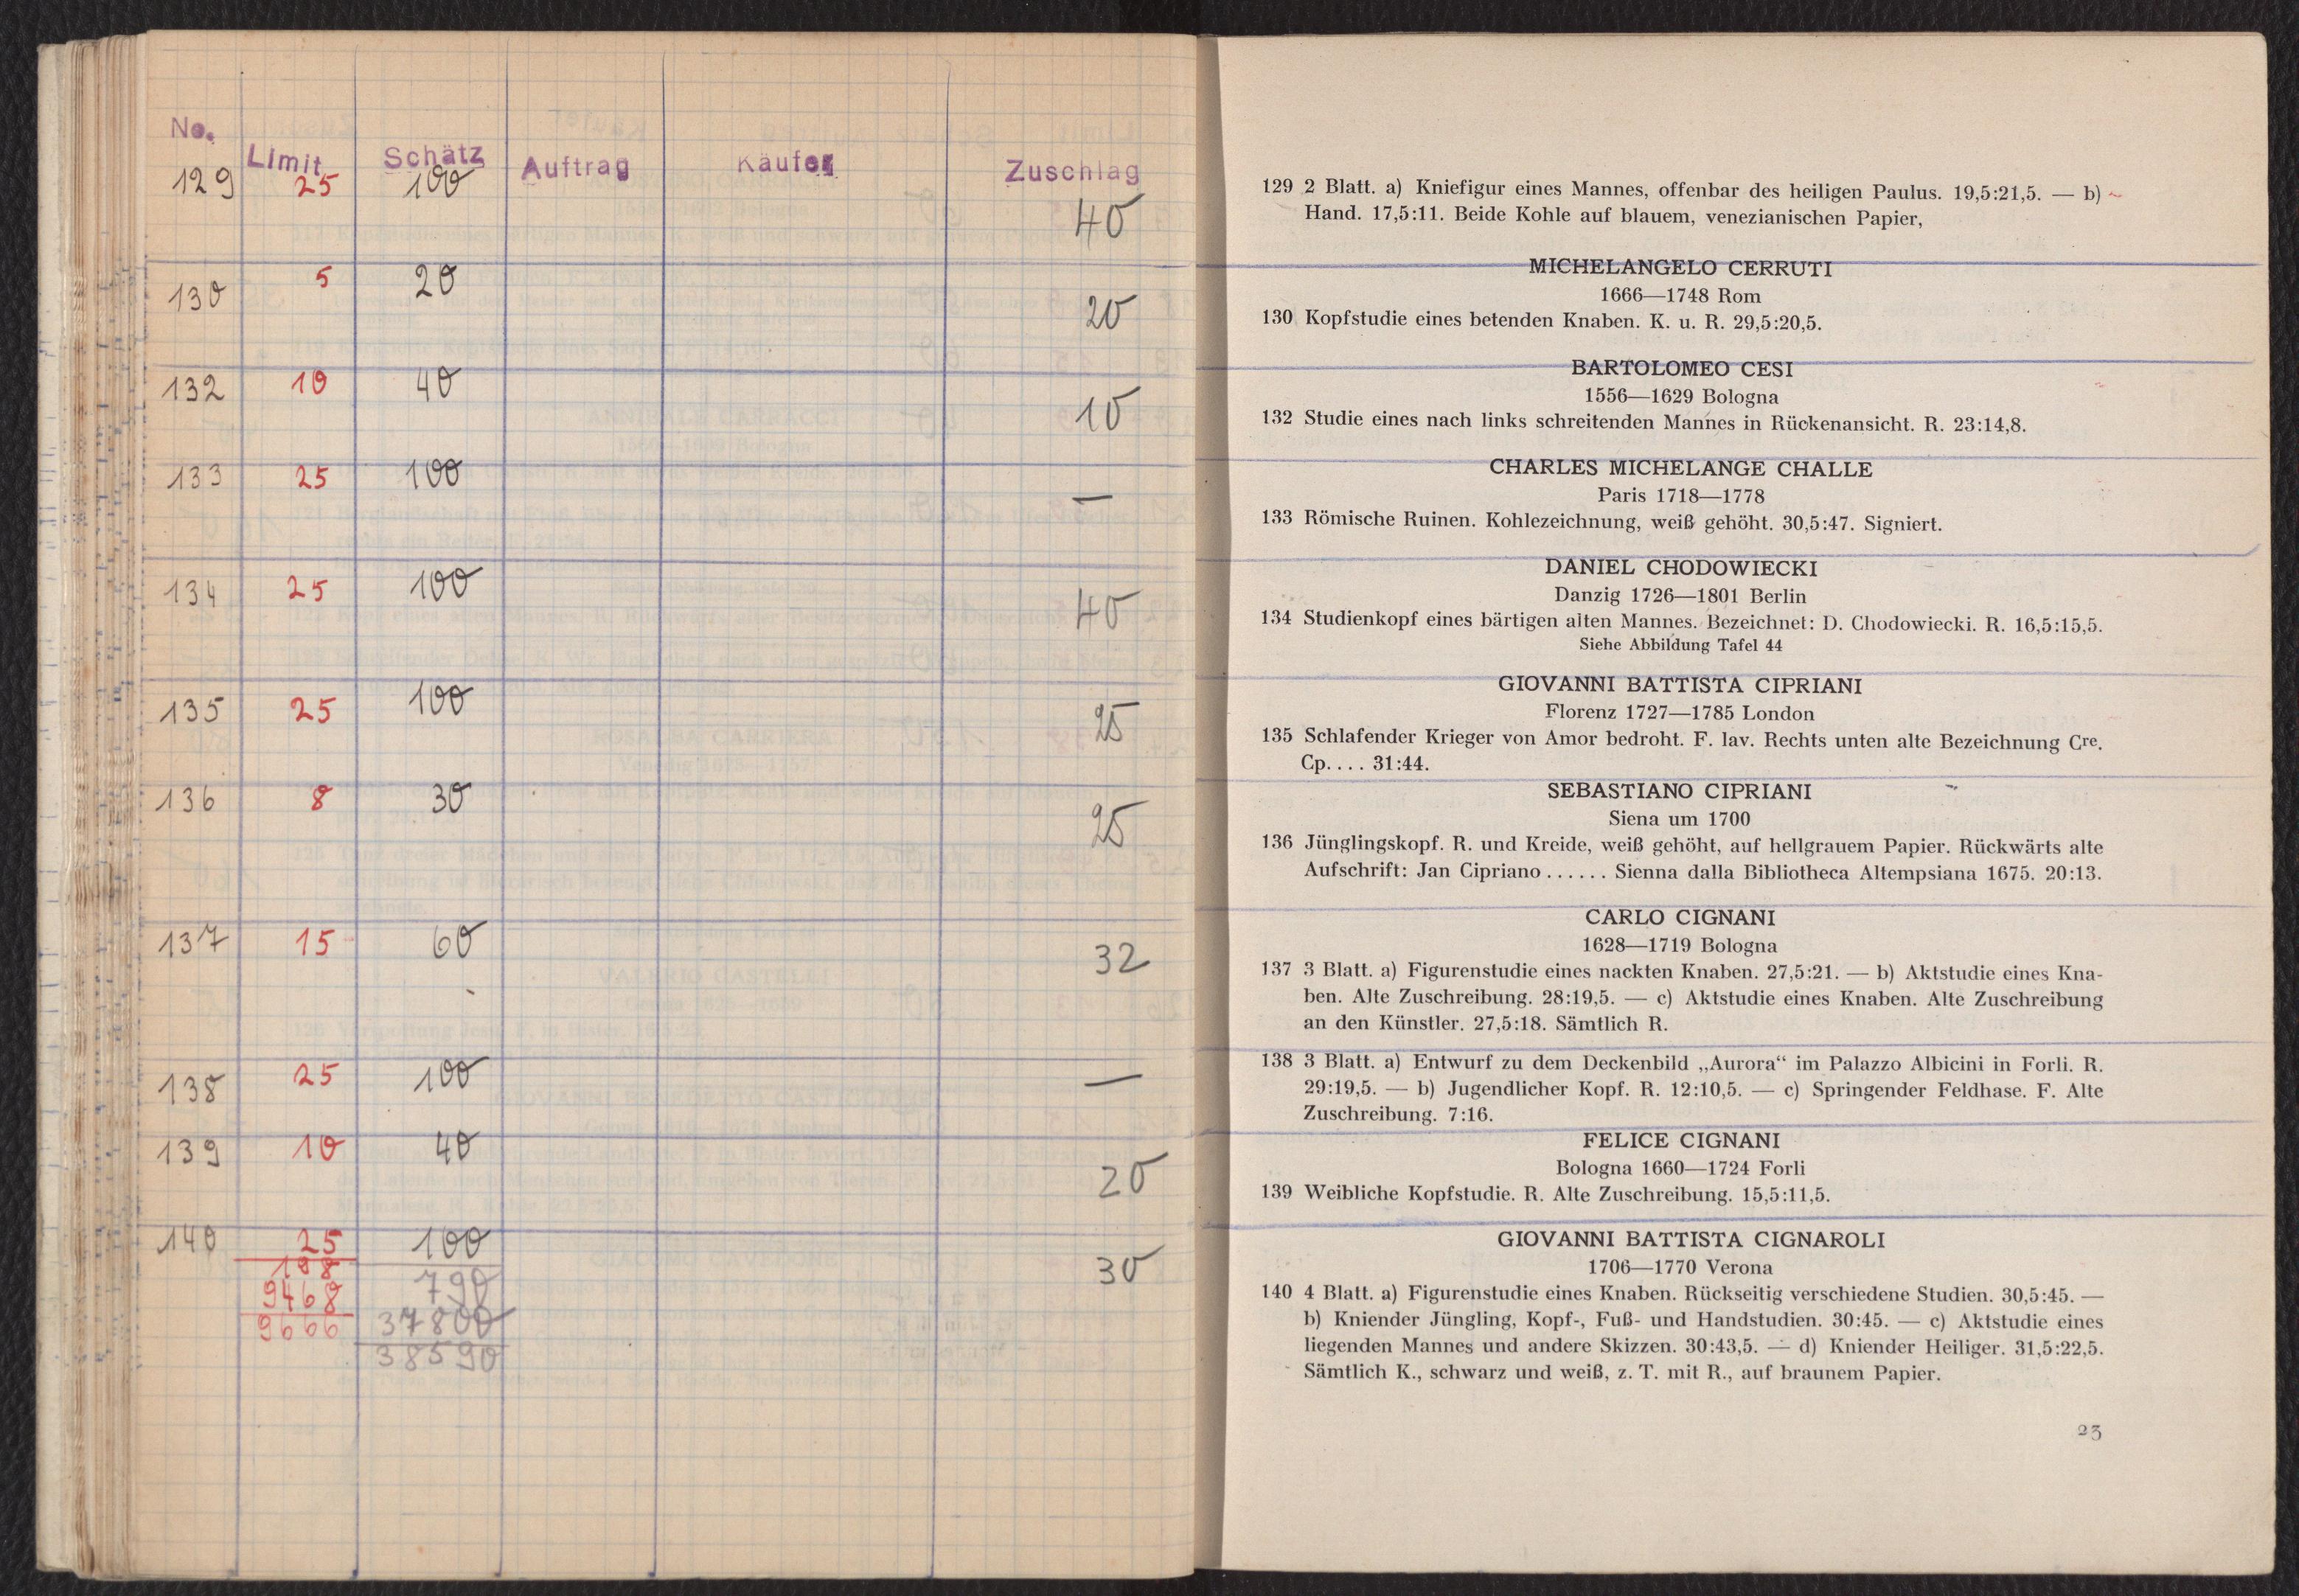 No. Limit Schätz Auftrag Käufer Zuschlag
129 25 100 40
130 5 20 20
132 10 40 10
133 25 100 —
134 25 100 40
135 25 100 25
136 8 30 25
137 15 60 32
138 25 100 —
139 10 40 20
140 25 100 30
198 790
9468 37800
9666 38590
129 2 Blatt. a) Kniefigur eines Mannes, offenbar des heiligen Paulus. 19,5:21,5. — b)
Hand. 17,5:11. Beide Kohle auf blauem, venezianischen Papier,
MICHELANGELO CERRUTI
1666—1748 Rom
130 Kopfstudie eines betenden Knaben. K. u. R. 29,5:20,5.
BARTOLOMEO CESI
1556—1629 Bologna
132 Studie eines nach links schreitenden Mannes in Rückenansicht. R. 23:14,8.
CHARLES MICHELANGE CHALLE
Paris 1718—1778
133 Römische Ruinen. Kohlezeichnung, weiß gehöht. 30,5:47. Signiert.
DANIEL CHODOWIECKI
Danzig 1726—1801 Berlin
134 Studienkopf eines bärtigen alten Mannes. Bezeichnet: D. Chodowiecki. R. 16,5:15,5.
Siehe Abbildung Tafel 44
GIOVANNI BATTISTA CIPRIANI
Florenz 1727—1785 London
135 Schlafender Krieger von Amor bedroht. F. lav. Rechts unten alte Bezeichnung Cre.
Cp.... 31:44.
SEBASTIANO CIPRIANI
Siena um 1700
136 Jünglingskopf. R. und Kreide, weiß gehöht, auf hellgrauem Papier. Rückwärts alte
Aufschrift: Jan Cipriano ...... Sienna dalla Bibliotheca Altempsiana 1675. 20:13.
CARLO CIGNANI
1628—1719 Bologna
137 3 Blatt. a) Figurenstudie eines nackten Knaben. 27,5:21. — b) Aktstudie eines Kna-
ben. Alte Zuschreibung. 28:19,5. — c) Aktstudie eines Knaben. Alte Zuschreibung
an den Künstler. 27,5:18. Sämtlich R.
138 3 Blatt. a) Entwurf zu dem Deckenbild „Aurora“ im Palazzo Albicini in Forli. R.
29:19,5. — b) Jugendlicher Kopf. R. 12:10,5. — c) Springender Feldhase. F. Alte
Zuschreibung. 7:16.
FELICE CIGNANI
Bologna 1660—1724 Forli
139 Weibliche Kopfstudie. R. Alte Zuschreibung. 15,5:11,5.
GIOVANNI BATTISTA CIGNAROLI
1706—1770 Verona
140 4 Blatt. a) Figurenstudie eines Knaben. Rückseitig verschiedene Studien. 30,5:45. —
b) Kniender Jüngling, Kopf-, Fuß- und Handstudien. 30:45. — c) Aktstudie eines
liegenden Mannes und andere Skizzen. 30:43,5. — d) Kniender Heiliger. 31,5:22,5.
Sämtlich K., schwarz und weiß, z. T. mit R., auf braunem Papier.
23